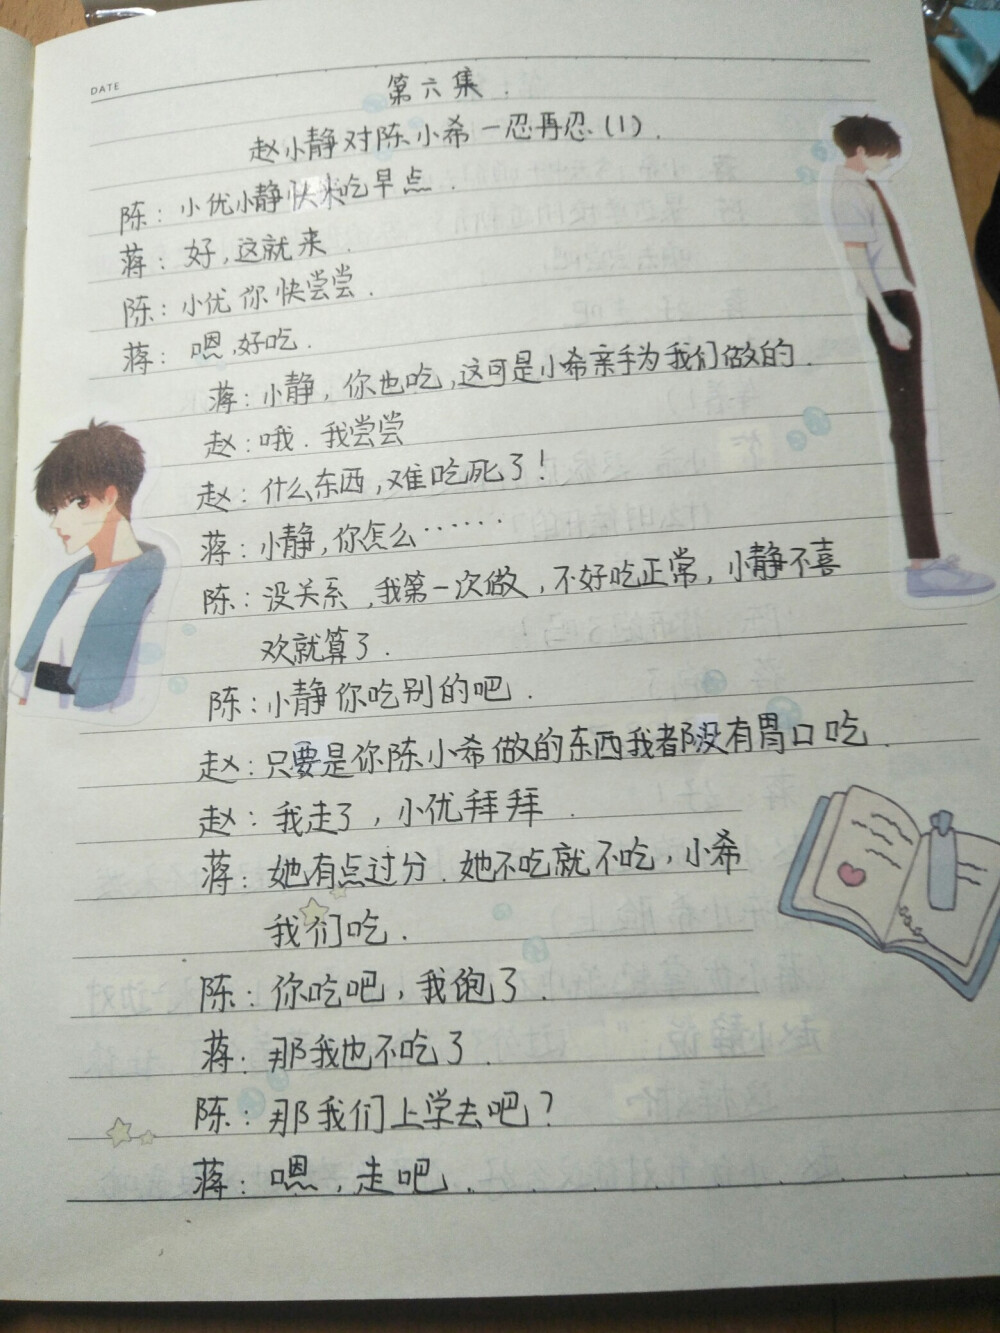 DATE
第六集.
赵小静对陈小希一忍再忍(1).
陈：小优小静快来吃早点.
蒋：好,这就来.
陈：小优你快尝尝.
蒋：嗯,好吃.
蒋：小静，你也吃,这可是小希亲手为我们做的.
赵：哦.我尝尝
赵：什么东西,难吃死了！
蒋：小静,你怎么······
陈：没关系,我第一次做,不好吃正常，小静不喜
欢就算了.
陈：小静你吃别的吧.
赵：只要是你陈小希做的东西我都没有胃口吃.
赵：我走了,小优拜拜.
蒋：她有点过分.她不吃就不吃,小希
我们吃.
陈：你吃吧,我饱了.
蒋：那我也不吃了.
陈：那我们上学去吧？
蒋：嗯,走吧.